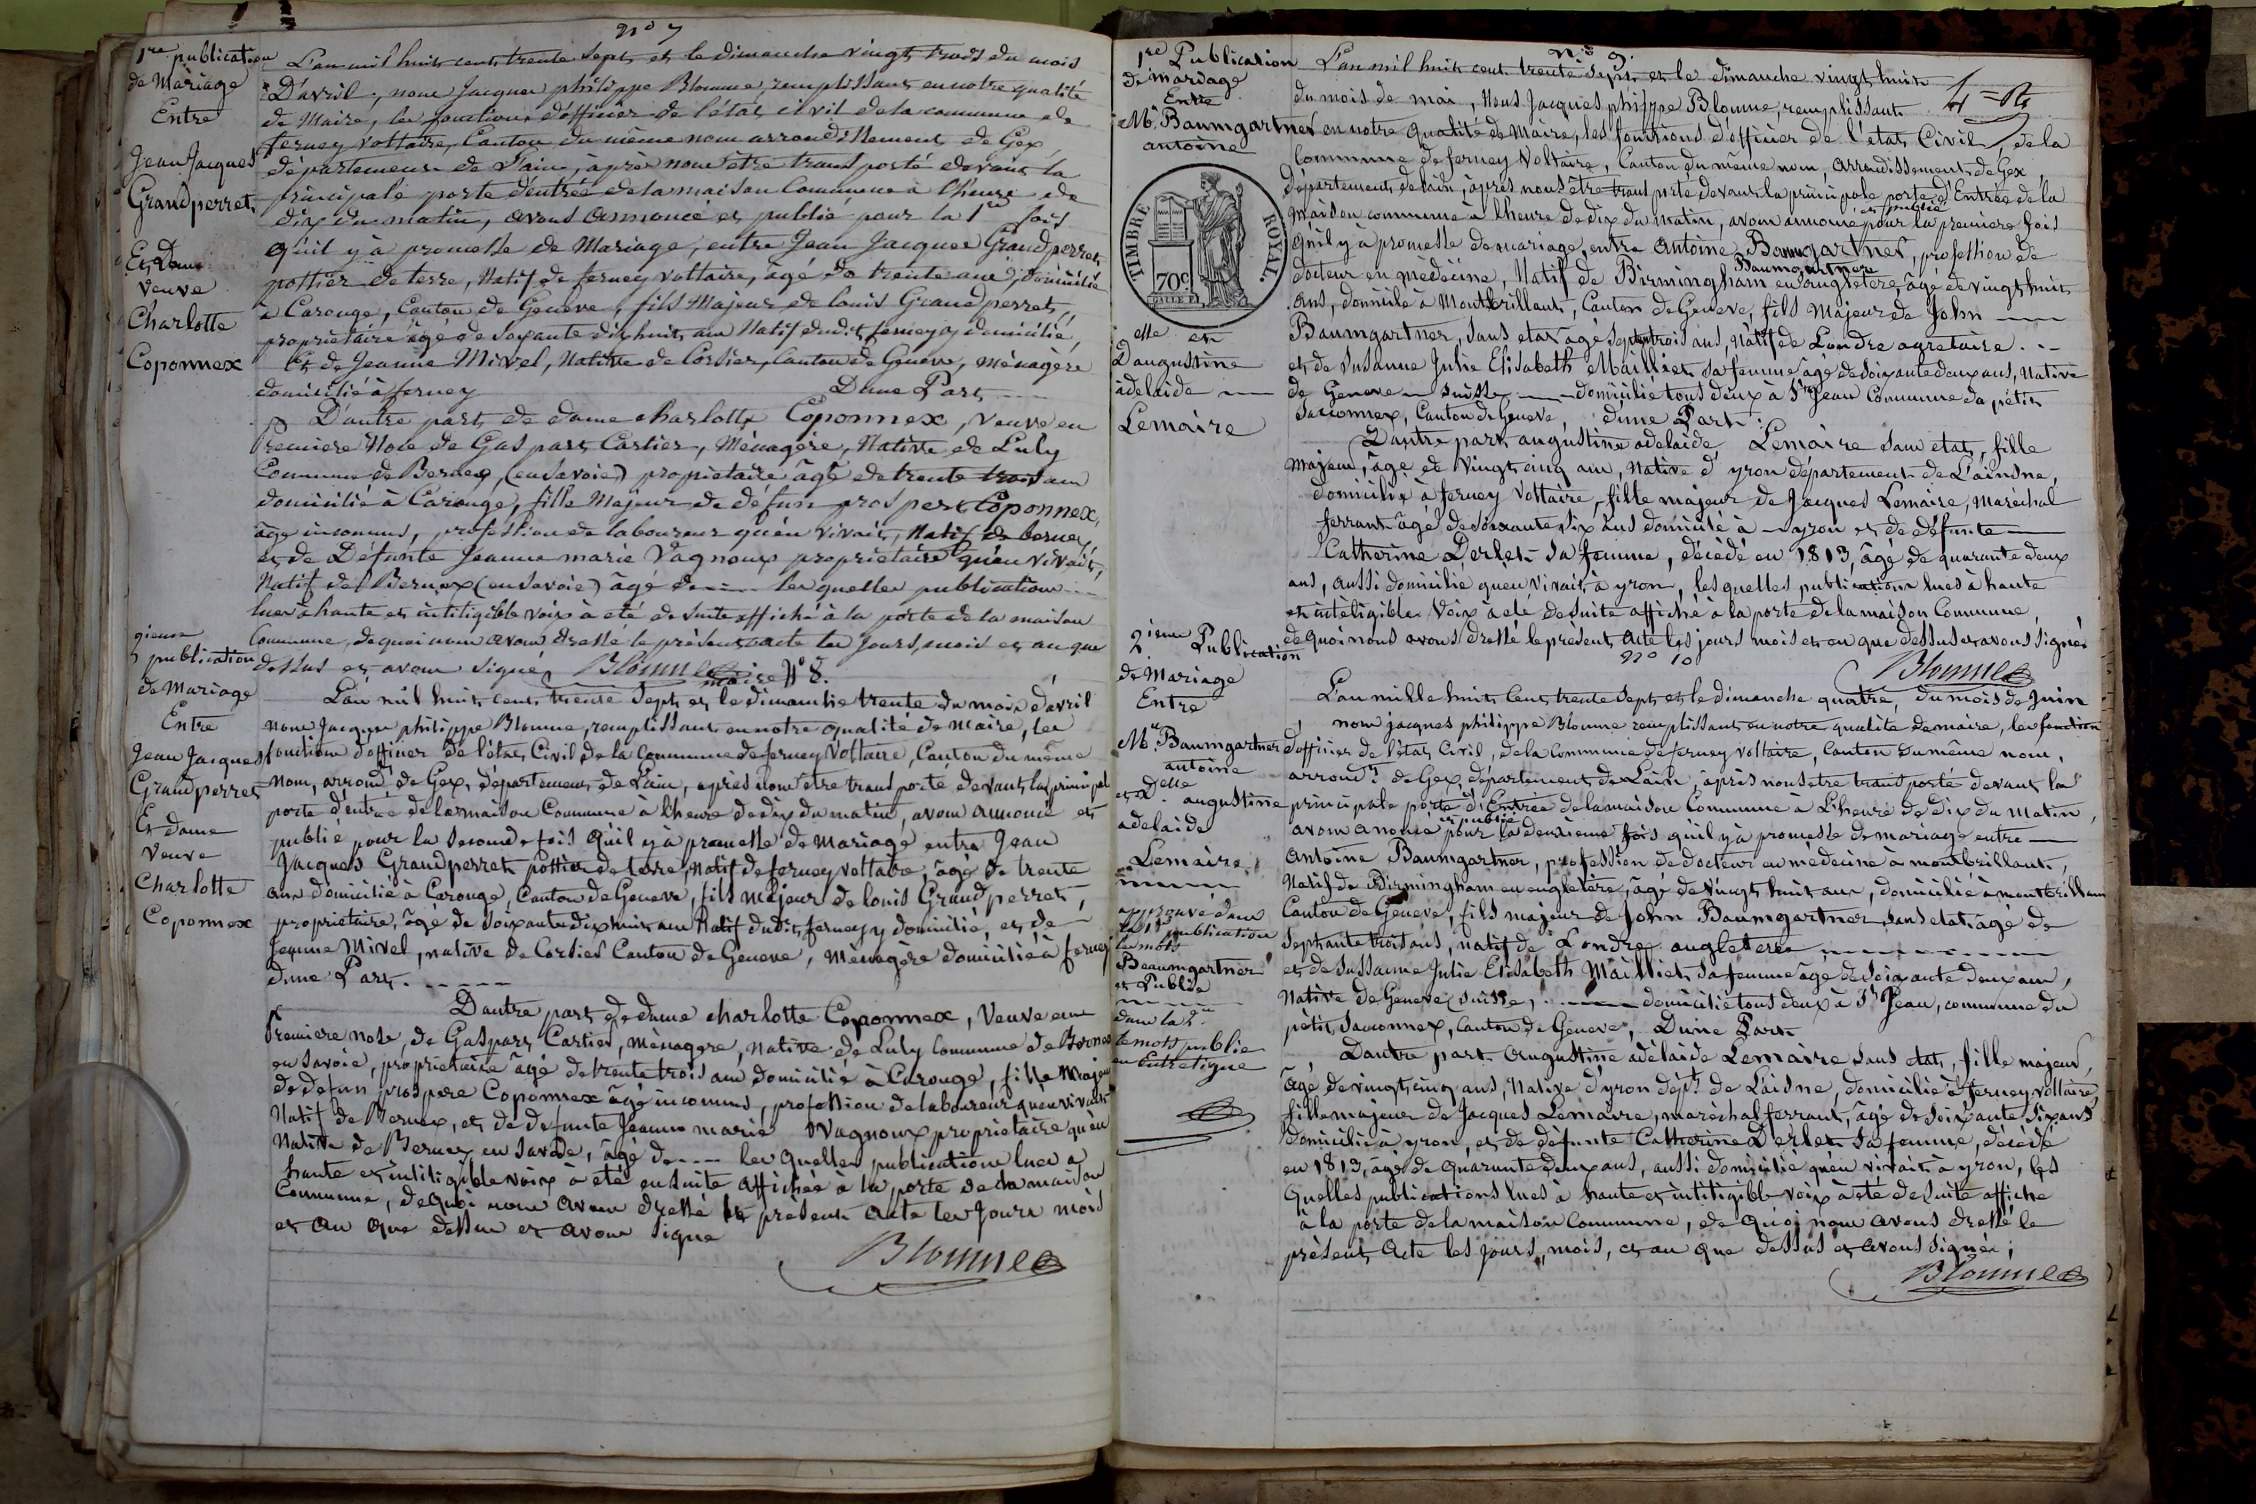 no 7
1re publication
de Mariage
Entre
Jean Jacques
Grandperret
Et Dame
veuve
Charlotte
Coponnex
L'an mil huit cent trente sept et le dimanche vingt trois du mois
D'avril, nous Jacques philippe Blonme, remplissant en notre qualité
de Maire, les fonctions d'officier de l'état civil de la commune de
ferney voltaire, Canton du même nom arrondissement de Gex,
département de l'ain, après nous être transporté devant la
principale porte d'entrée de la maison Commune à l'heure de
dix du matin, avons annoncé et publié pour la 1re fois
qu'il y à promesse de Mariage, entre Jean Jacques Grandperret
pottier de terre, Natif de ferney voltaire, âgé de trente ans, domicilié
à Carouge, Canton de Genève, fils Majeur de louis Grandperret,
propriétaire âgé de soixante dix huit ans Natif dudit ferney y domicilié,
Et de Jeanne Mivel, Native de Corsier, Canton de Geneve, ménagère
domicilié à ferney Dune Part
D'autre part de dame charlotte Coponnex, veuve en
Premiere Noce de Gaspart Cartier, Ménagère, Native de Luly
Commune de Bernex, (en Savoie) propriétaire âgé de trente trois ans
domicilié à Carouge, fille Majeur de défun prospert Coponnex,
âge inconnus, profession de laboureur qu'en vivait, Natif de berney,
et de Défunte Jeanne marie Vagnoux propriétaire qu'en vivait,
Natif de Bernex (en Savoie) âgé de ---- les quelles publication
lues à haute et intiligible voix à été de suite affiché à la porte de la maison
Commune, de quoi nous avons dressé le présent acte les jours, mois et an que
dessus et avons signé Blonme
maire
N° 8.
2ieme
publication
de Mariage
Entre
Jean Jacques
Grandperret
Et dame
Veuve
Charlotte
Coponnex
L'an mil huit cent trente sept et le dimanche trente du mois d'avril
nous Jacques philippe Blonme, remplissant en notre qualité de maire, les
fonctions d'officier de l'état Civil de la Commune de ferney voltaire, Canton du même
nom, arrond.t de Gex, département de l'ain, après nous être transporté devant la principal
porte d'entrée de la maison Commune à l'heure de dix du matin, avons annoncé et
publié pour la seconde fois qu'il y à promesse de Mariage entre Jean
Jacques Grandperret pottier de terre, Natif de ferney voltaire, âgé de trente
ans domicilié à Carouge, Canton de Geneve, fils Majeur de louis Grandperret,
propriétaire, âgé de soixante dix huit ans Natif dudit ferney y domicilié, et de
Jeanne Mivel, native de Corsier Canton de Geneve, Ménagère domicilié à ferney
dune Part.
Dautre part de dame charlotte Coponnex, Veuve en
Premiere nose, de Gaspart Cartier, ménagere, native de Luly Commune de Bernex
en Savoie, propriétaire âgé de trente trois ans domicilié à Carouge, fille Majeur
de défun prospere Coponnex âgé inconnus, profession de laboureur qu'en vivait
Natif de Bernex, et de defunte Jeanne marie Vagnoux propriétaire qu'en
Native de Bernex en Savoie, âgé de ---- les quelles publications lues a
haute et intiligible voix à été ensuite affichée à la porte de la maison
Commune, de quoi nous avons dressé le présent acte les Jours mois
et an que dessus et avons signé
Blonme
no 9.
1re Publication
de mariage
Entre
Mr Baumgartner
antoine
TIMBRE ROYAL.
70c
elle et
D augustine
adélaïde
Lemaire
L'an mil huit cent trente sept et le dimanche vingt huit
du mois de mai, Nous Jacques philippe Blonme, remplissant
en notre qualité de Maire, les fonctions d'officier de l'état Civil, de la
Commune de ferney Voltaire, Canton du même nom, Arrondissement de Gex,
département de l'ain, après nous être transporté devant la principale porte d'Entrée de la
et publié
maison commune à l'heure de dix du matin, avons annoncé pour la premiere fois
qu'il y à promesse de mariage, entre Antoine Baumgartner, profession de
Baumgartner
docteur en médecine, Natif de Birmingham en angleterre, âgé de vingt huit
ans, domicilié à Montbrillant, Canton de Geneve, fils Majeur de John
Baumgartner, sans etat âgé septente trois ans, natif de Londre agretaire.
et de Susanne Julie Elisabeth Mailliet sa femme âgé de soixante deux ans, Native
de Geneve suisse domicilié tous deux à St Jean Commune du petit
saconnex, Canton de Geneve, d'une Part.
Dautre part augustine adelaide Lemaire sans etat, fille
majeur, âgé de vingt cinq ans, native d'yron département de L'ainsne,
domicilié à ferney voltaire, fille majeur de Jacques Lemaire, Maréchal
ferrant âgé de soixante six ans domicilié à yron et de défunte
Catherine Derlet sa femme, décédé en 1813, âgé de quarante deux
ans, aussi domicilié qu'en vivait a yron, les quelles publications lues à haute
et intéligible Voix à été de suite affiché à la porte de la maison Commune,
de quoi nous avons dressé le présent acte les jours mois et an que dessus et avons signés
Blonme
no 10
2ieme Publication
de Mariage
Entre
Mr Baumgartner
antoine
et Delle augustine
adelaide
Lemaire
approuvé dans
la 1re publication
les mots
Beaumgartner
et Publié
dans la 2me
le mots publie
en Entreligne
L'an mille huit Cent trente sept et le dimanche quatre, du mois de Juin
nous jacques philippe Blonme remplissant en notre qualité de maire, les fonction
d'officier de l'état Civil, de la Commune de ferney voltaire, Canton du même nom,
arrond.t de Gex, département de L'ain, après nous etre transporté devant la
principale porte d'Entrée de la maison Commune à L'heure de Dix du Matin,
et publié
avons anoncé pour la deuxieme fois qu'il y à promesse de mariage entre
Antoine Baumgartner, profession de docteur en médecine à montbrillant,
Natif de Birmingham en engletère, âgé de vingt huit ans, domicilié à montbrillant
Canton de Geneve, fils majeur de John Baumgartner sans etat âgé de
septante trois ans, natif de Londre angleterre
et de Sussanne Julie Elisabeth Mailliet sa femme âgé de soixante deux ans,
Native de Geneve (suisse, domicilié tous deux à St Jean, commune du
petit Saconnex, Canton de Geneve, Dune Part
Dautre part Augustine adélaïde Lemaire sans etat, fille majeur,
âgé de vingt cinq ans, Native d'yron dépt de L'aisne, domicilié à ferney voltaire,
fille majeur de Jacques Lemaire, maréchal ferrant, âgé de soixante six ans
domicilié à yron, et de défunte Catherine Derlet sa femme, décédé
en 1813, âgé de quarante deux ans, aussi domicilié qu'en vivait à yron, les
quelles publications lues à haute et intiligible voix à été de suite affiche
à la porte de la maison commune, de quoi nous avons dressé le
présent acte les jours, mois, et an que dessus et avons signés;
Blonme